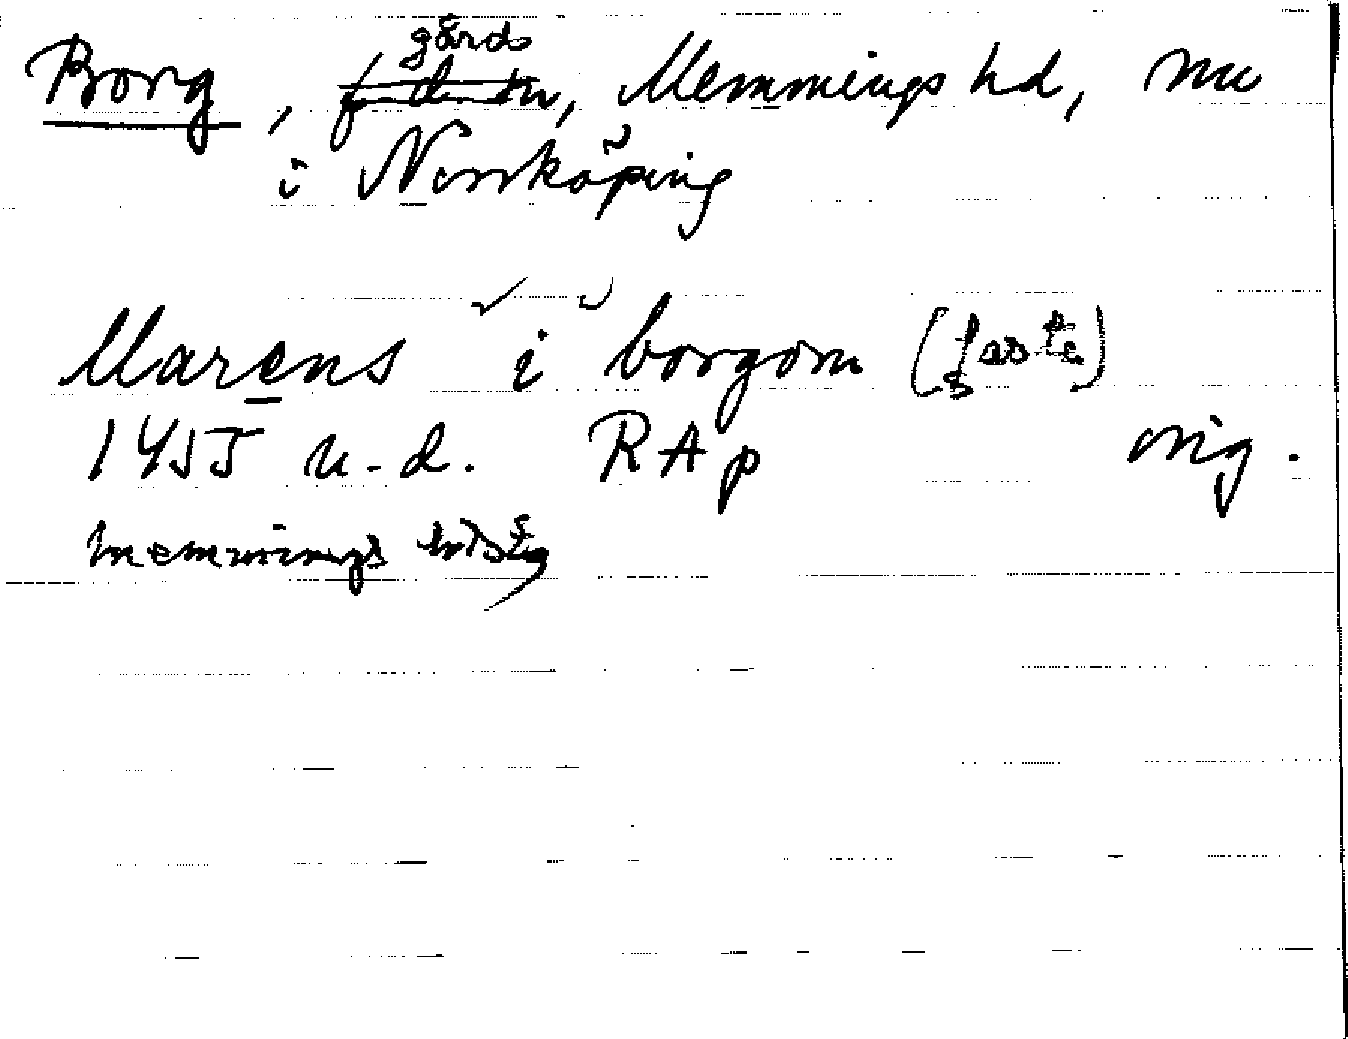 gårds
Borg, f. d. sn, Memmings hd, nu
i Norrköping
Marcus i borgom (faste)
1455 u.d. RAp orig.
memmings